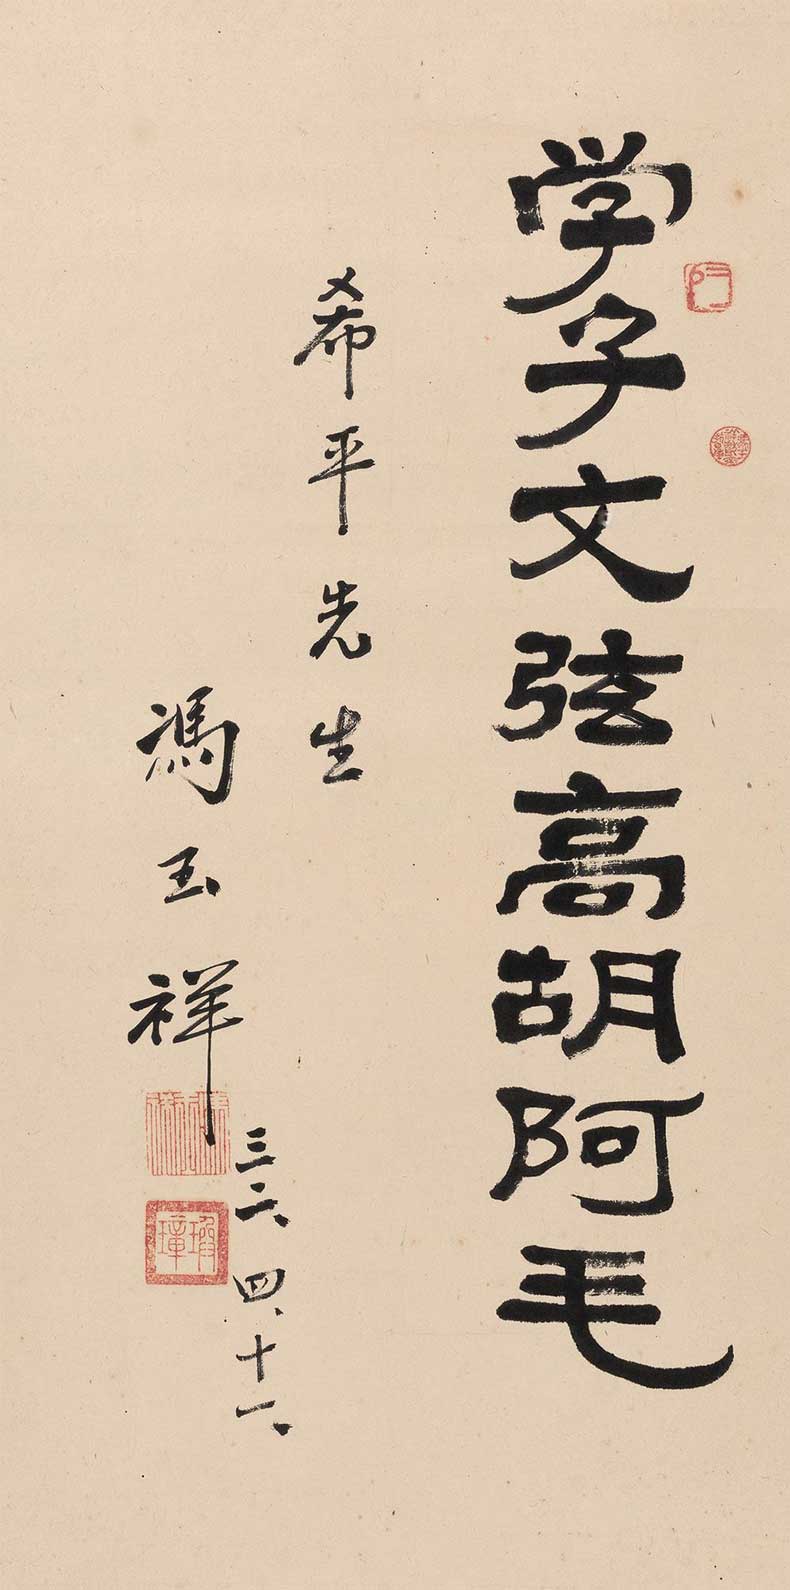 学子文弦高胡阿毛
希平先生
馮玉祥
三六、四、十一、